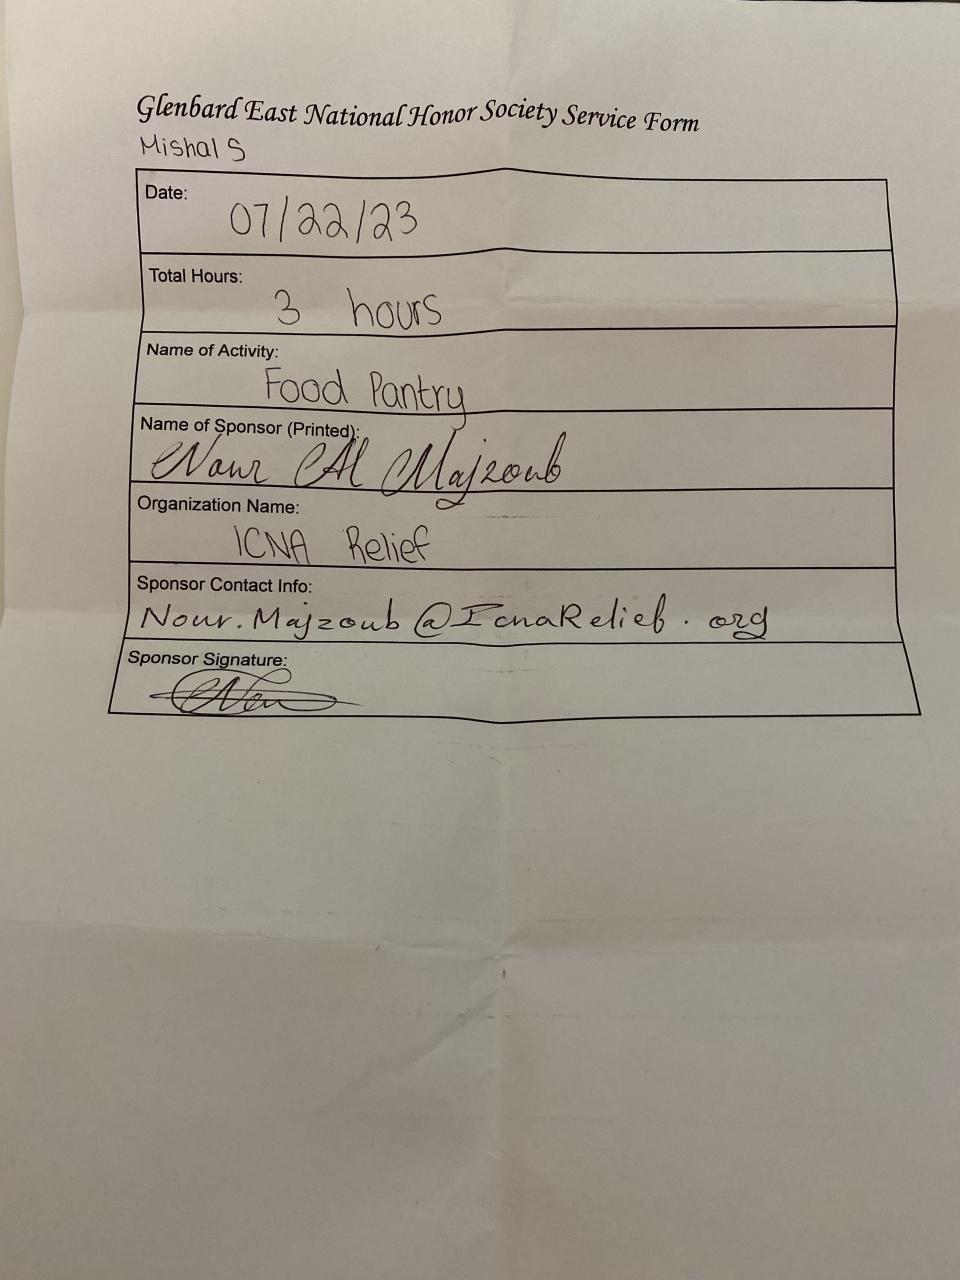 Glenbard East National Honor Society Service Form
Mishal S
Date:
07/22/23
Total Hours:
3 hours
Name of Activity:
Food Pantry
Name of Sponsor (Printed):
Nour Al Majzoub
Organization Name:
ICNA Relief
Sponsor Contact Info:
Nour.Majzoub@IcnaRelief.org
Sponsor Signature:
Nour